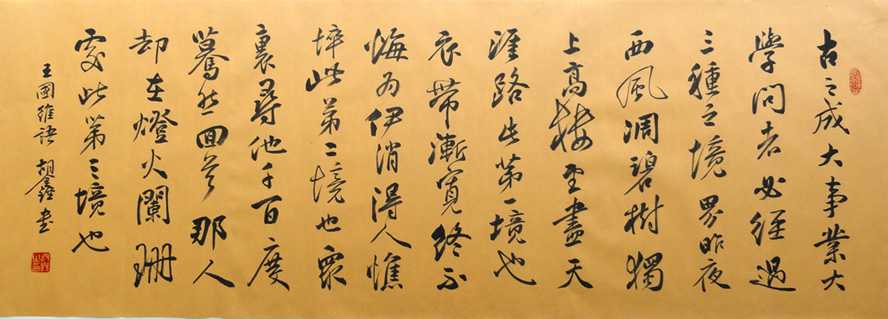 古之成大事業大
學问者必經過
三種之境界昨夜
西風凋碧樹獨
上高樓望盡天
涯路此第一境也
衣帶漸寬終不
悔为伊消得人憔
悴此第二境也眾
裏尋他千百度
驀然回首那人
却在燈火闌珊
處此第三境也
王國維语 胡鑫书